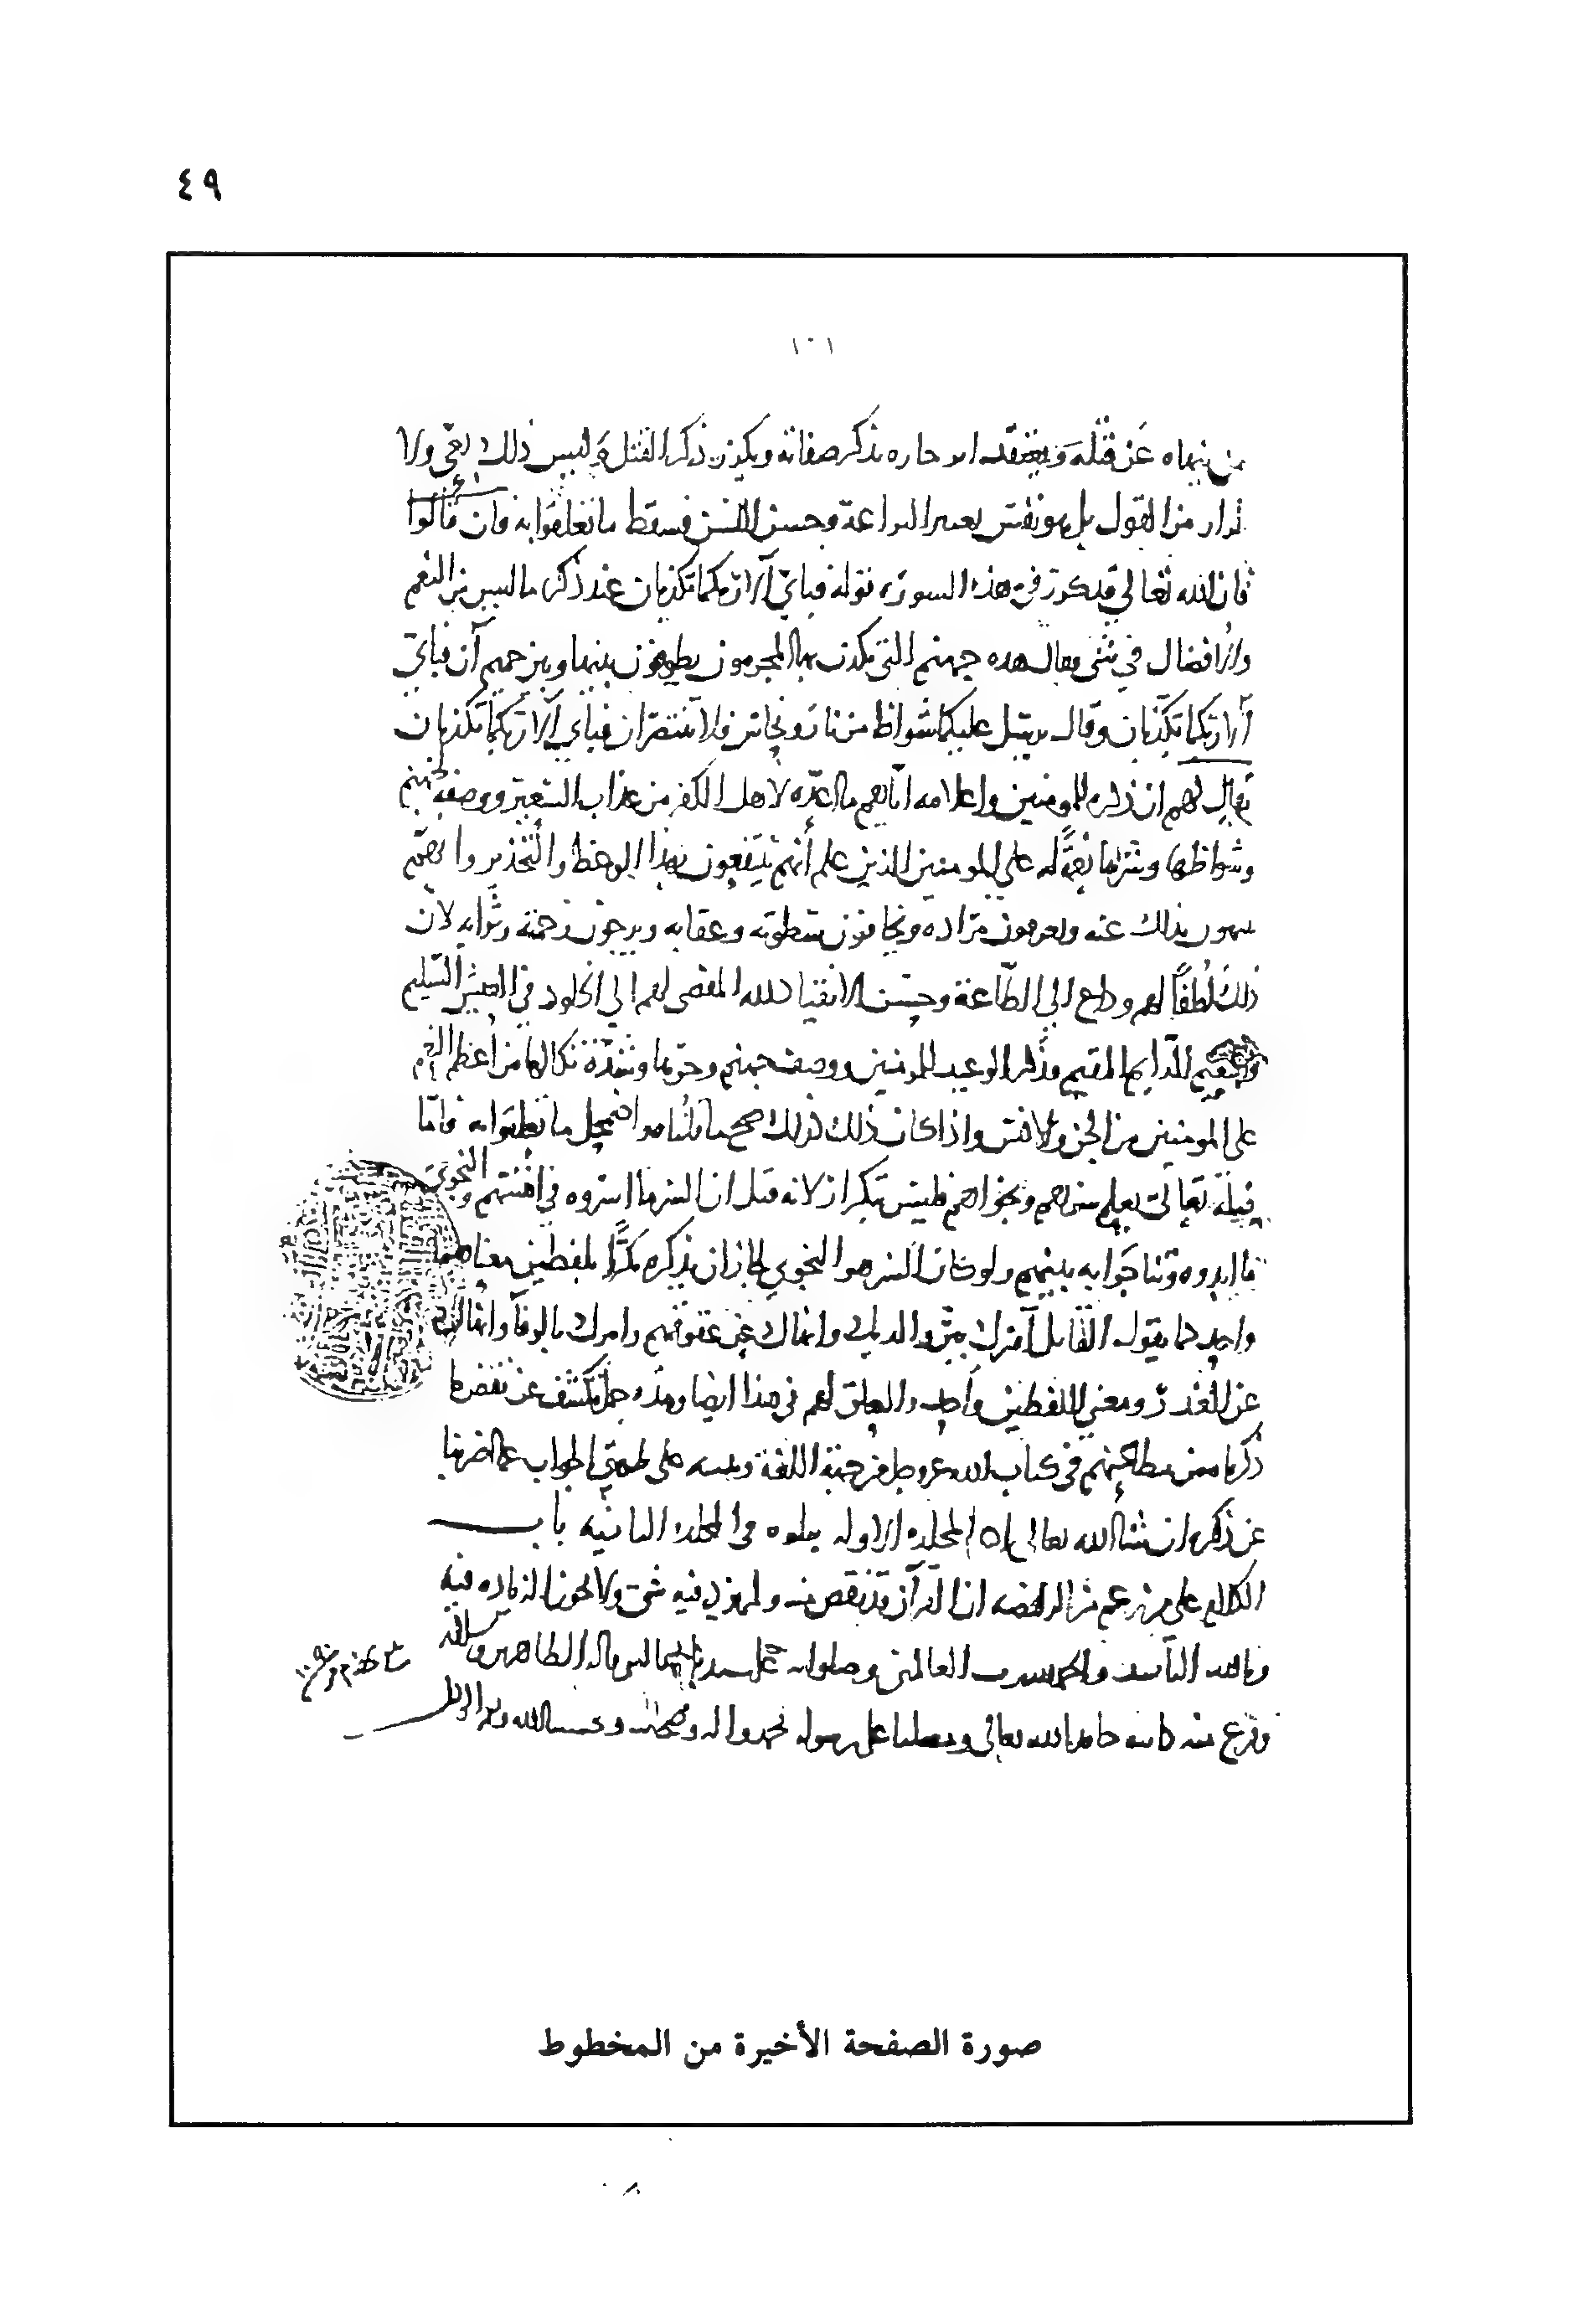 ٤٩
١٠١
من ينهاه عن قتله ويعتقد يذكر صفاته ويكون ذكر القتل وليس ذلك بعي ولا
من القول بل هو نفس البراعة وحسن اللسن فسقط ما تعلقوا به فان قالوا
فان الله تعالى قد كرر في هذه السورة قوله فباي آلاء ربكما تكذبان عند ذكر ما ليس من النعم
والافضال في شي فقال هذه جهنم التي يكذب بها المجرمون يطوفون بينها وبين حميم آن فباي
آلاء ربكما تكذبان وقال يرسل عليكما شواظ من نار ونحاس فلا تنتصران فباي آلاء ربكما تكذبان
يقال لهم ان ذكره للمومنين واعلامه اياهم ما اعده لاهل الكفر من عذاب السعير ووصفه جهنم
وشواظها وشررها نعمة له على المومنين الذين علم أنهم ينتفعون بهذا الوعظ والتحذير
بذلك عنه ويعرفون مراده ويخافون سطوته وعقابه ويرجون رحمته وثوابه لان
ذلك لطفا لهم وداع الى الطاعة وحسن الانقياد لله المفضى لهم الى الخلود في العيش السليم
والنعيم الدايم المقيم وذكر الوعيد للمومنين ووصف جهنم وحرها وشدة نكالها من أعظم النعم
على المومنين من الجن والانس واذا كان ذلك كذلك صح ما قلناه واضمحل ما تعلقوا به فاما
قوله تعالى يعلم سرهم ونجواهم فليس بتكرار لانه قيل ان السر ما اسروه في أنفسهم والنجوى
ما ابدوه وتناجوا به بينهم ولو كان السر هو النجوى لجاز ان يذكره مكررا بلفظين معناهما
واحد كما يقول القايل آمرك ببر والديك وانهاك عن عقوقهم وامرك بالوفا وانهاك
عن الغدر ومعنى اللفظين واحد ولا تعلق لهم في هذا ايضا وهذه جمل تكشف عن نقض ما
ذكرنا من مطاعنهم في كتاب الله عز وجل من جهة اللغة وتنبه على طريق الجواب عما اضربنا
عن ذكره ان شا الله تعالى اخر المجلده الاوله يتلوه في المجلده الثانيه باب
الكلام على من زعم من الرافضه ان القرآن قد نقص منه ولم يزد فيه شي ولا يجوز الزياده فيه
وبالله التأييد والحمد لله رب العالمين وصلواته على سيدنا محمد النبى واله الطاهرين وسلامه
وفرغ منه كاتبه حامدا لله تعالى ومصليا على رسوله محمد واله وصحبه وحسبنا الله ونعم الوكيل
صورة الصفحة الأخيرة من المخطوط